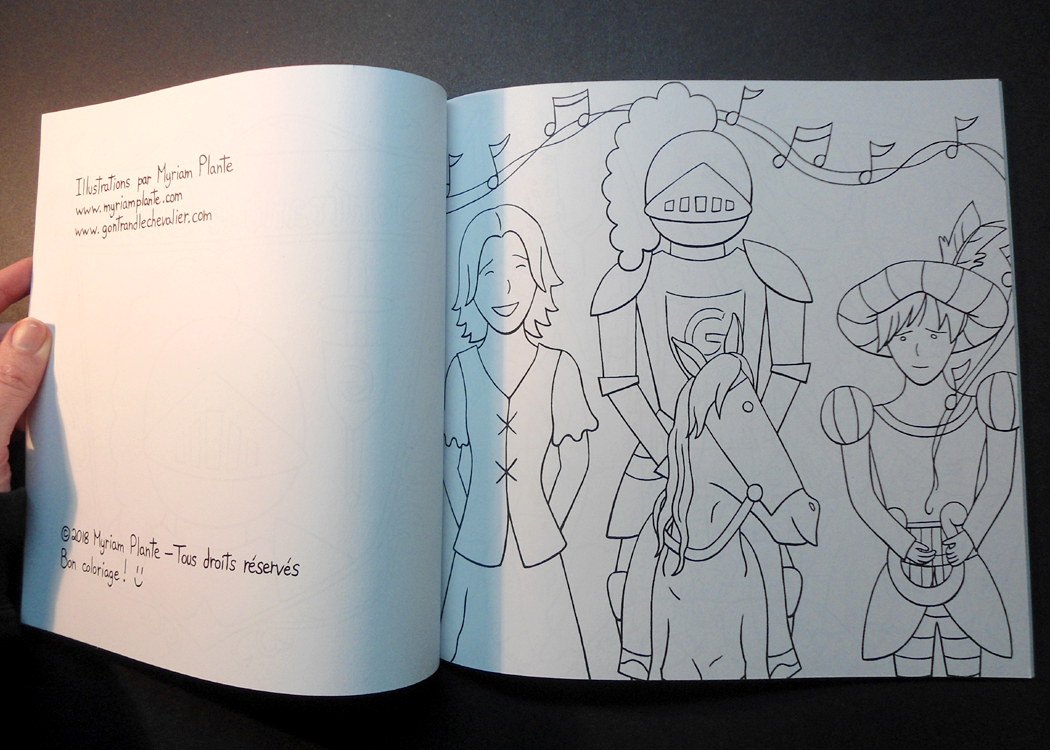 Illustrations par Myriam Plante
www.myriamplante.com
www.gontrandlechevalier.com
©2018 Myriam Plante – Tous droits réservés
Bon coloriage! :)
G